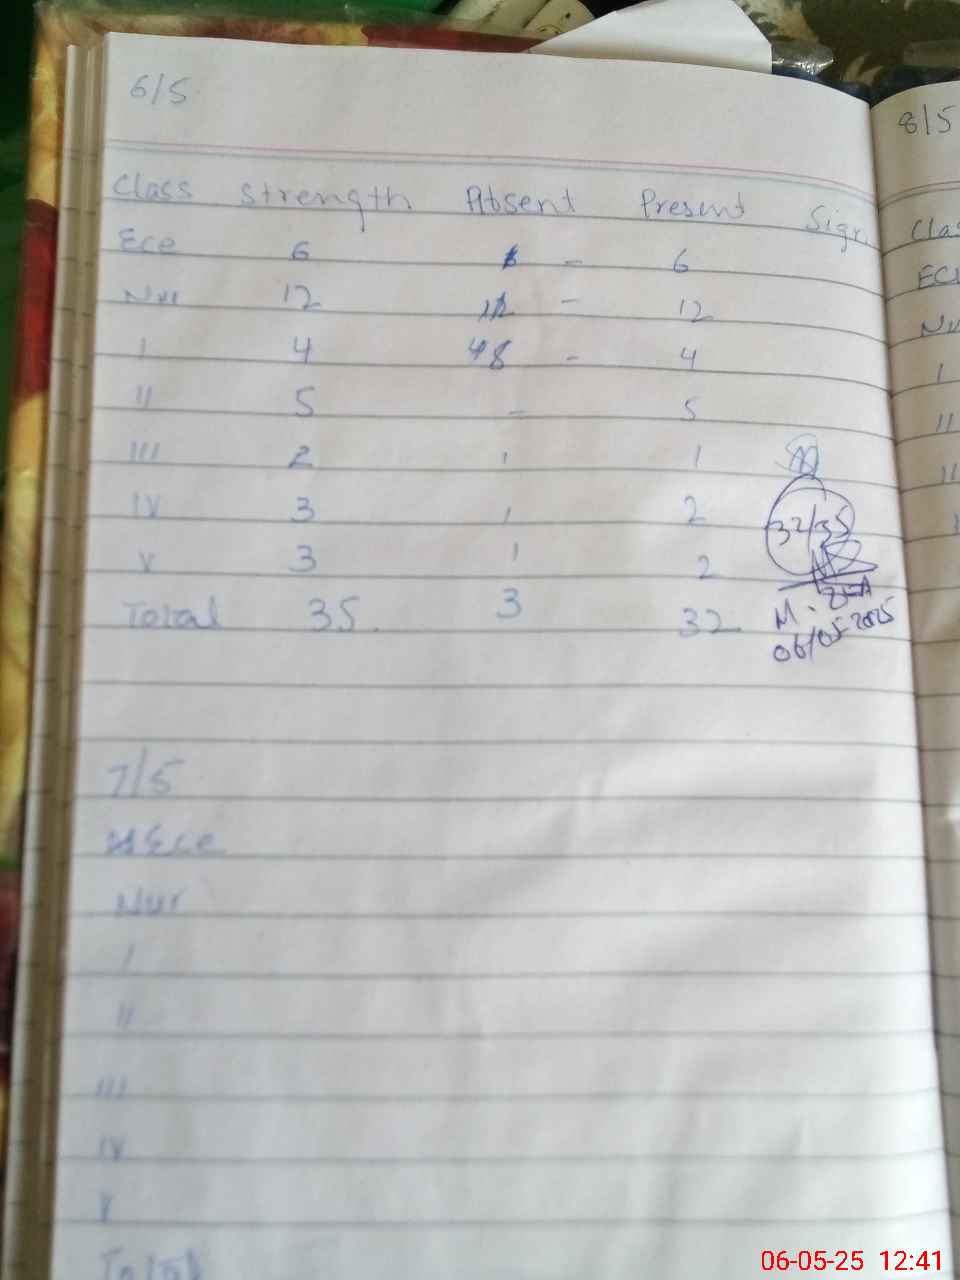 6/5
8/5
Class Strength Absent Present Sign.
Ece 6 - 6
Nur 12 - 12
I 4 - 4
II 5 - 5
III 2 1 1
IV 3 1 2
32/35
V 3 1 2
Total 35. 3 32
06/05-2025
7/5
Ece
Nur
I
II
III
IV
V
Total
Clas
ECE
Nu
I
II
06-05-25 12:41